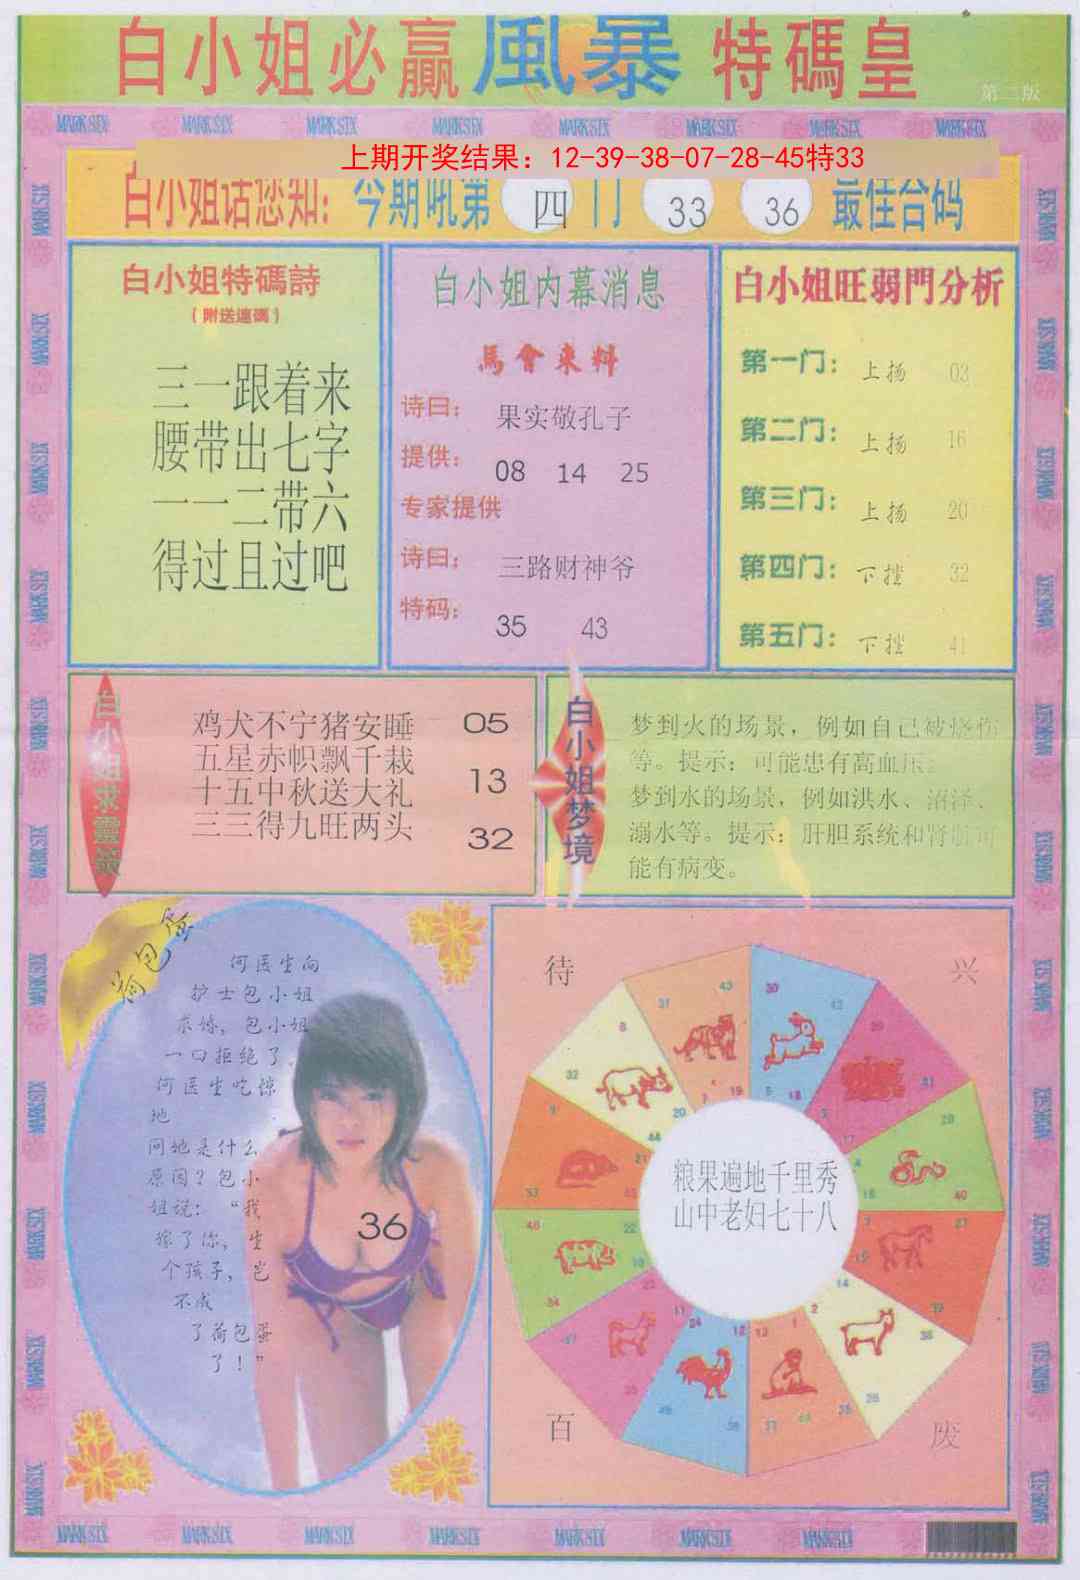 白小姐必赢風暴特碼皇
第二版
MARK SIX MARK SIX MARK SIX MARK SIX MARK SIX MARK SIX MARK SIX MARK SIX
上期开奖结果：12-39-38-07-28-45特33
白小姐话您知：今期吼第四门 33 36 最佳合码
白小姐特碼詩
（附送連碼）
三一跟着来
腰带出七字
一一二带六
得过且过吧
白小姐内幕消息
馬會來料
诗曰： 果实敬孔子
提供： 08 14 25
专家提供
诗曰： 三路财神爷
特码： 35 43
白小姐旺弱門分析
第一门： 上扬 03
第二门： 上扬 16
第三门： 上扬 20
第四门： 下挫 32
第五门： 下挫 41
白小姐求靈簽
鸡犬不宁猪安睡 05
五星赤帜飘千栽
十五中秋送大礼 13
三三得九旺两头 32
白小姐梦境
梦到火的场景，例如自己被烧伤
等。提示：可能患有高血压
梦到水的场景，例如洪水、沼泽、
溺水等。提示：肝胆系统和肾脏可
能有病变。
荷包蛋
何医生向
护士包小姐
求婚，包小姐
一口拒绝了，
何医生吃惊
地
问她是什么
原因？包小
姐说：“我
嫁了你，生
个孩子，岂
不成
了荷包蛋
了！”
36
待 兴
粮果遍地千里秀
山中老妇七十八
百 废
MARK SIX MARK SIX MARK SIX MARK SIX MARK SIX MARK SIX MARK SIX